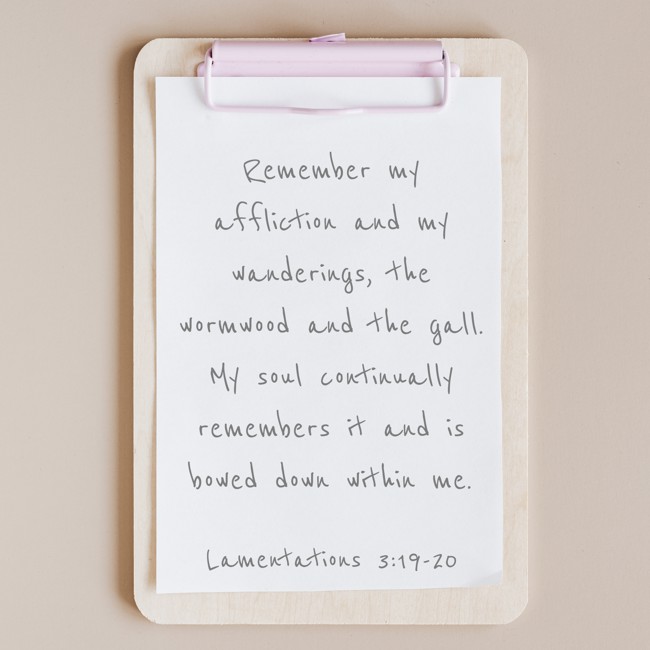 Remember my
affliction and my
wanderings, the
wormwood and the gall.
My soul continually
remembers it and is
bowed down within me.
Lamentations 3:19-20